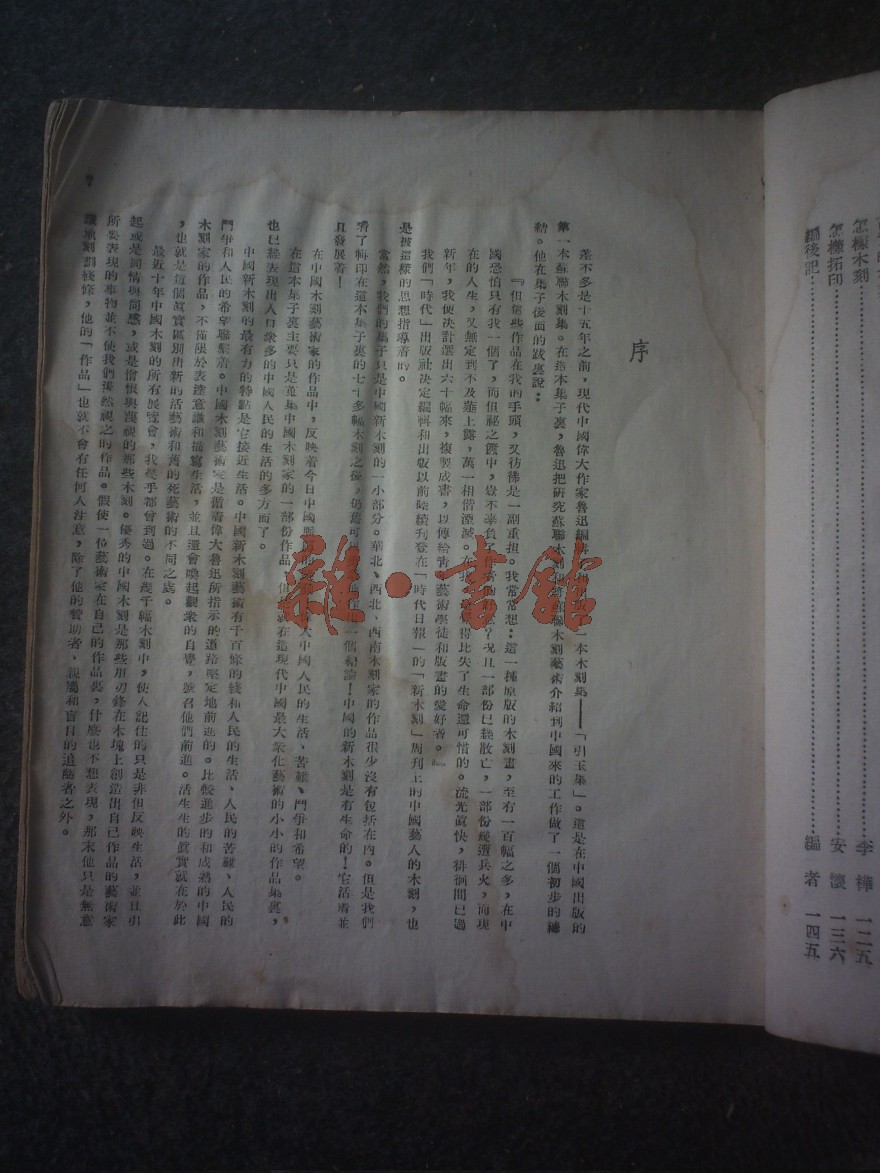 怎樣木刻……………李樺 一二五
怎樣拓印……………安懷 一三六
編後記……………編者 一四五
序
差不多是十五年之前,現代中國偉大作家魯迅編 一本木刻集——「引玉集」。這是在中國出版的
第一本蘇聯木刻集。在這本集子裏,魯迅把研究蘇聯木 木刻藝術介紹到中國來的工作做了一個初步的總
結。他在集子後面的跋裏說:
『但這些作品在我的手頭,又彷彿是一副重担。我常常想:這一種原版的木刻畫,至有一百幅之多,在中
國恐怕只有我一個了,而但祕之篋中,豈不辜負 ?况且一部份已經散亡,一部份幾遭兵火,而現
在的人生,又無定到不及薤上露,萬一相偕湮滅。在我 得比失了生命還可惜的。流光眞快,徘徊間已過
新年,我便决計選出六十幅來,複製成書,以傳給青 藝術學徒和版畫的愛好者。』
我們「時代」出版社决定編輯和出版以前陸續刊登在「時代日報」的「新木刻」周刊上的中國藝人的木刻,也
是被這樣的思想指導着的。
當然,我們的集子只是中國新木刻的一小部分。華北、西北、西南木刻家的作品很少沒有包括在內。但是我們
看了輯印在這本集子裏的七十多幅木刻之後,仍舊可 一個結論!中國的新木刻是有生命的!它活着並
且發展着!
在中國木刻藝術家的作品中,反映着今日中國 大中國人民的生活、苦難、鬥爭和希望。
在這本集子裏主要只是選集中國木刻家的一部份作品, 在這現代中國最大衆化藝術的小小的作品集裏,
也已經表現出人口衆多的中國人民的生活的多方面了。
中國新木刻的最有力的特點是它接近生活。中國新木刻藝術有千百條的綫和人民的生活、人民的苦難、人民的
鬥爭和人民的希望聯繫着。中國木刻藝術家是循着偉大魯迅所指示的道路堅定地前進的。比較進步的和成熟的中國
木刻家的作品,不僅限於表達意識和描寫生活,並且還會喚起觀衆的自覺,號召他們前進。活生生的眞實就在於此
,也就是這個眞實區別出新的活藝術和舊的死藝術的不同之處。
最近十年中國木刻的所有展覽會,我幾乎都曾到過。在幾千幅木刻中,使人記住的只是非但反映生活,並且引
起或是同情與同感,或是憎恨與蔑視的那些木刻。優秀的中國木刻是那些用刀鋒在木塊上創造出自己作品的藝術家
所要表現的事物並不使我們漠然視之的作品。假使一位藝術家在自己的作品裏,什麼也不想表現,那末他只是無意
識地刻劃綫條,他的「作品」也就不會有任何人注意,除了他的贊助者、親屬和盲目的追隨者之外。
7
雜·書館